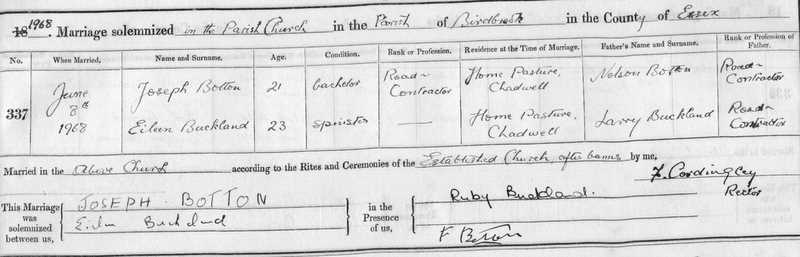 18 1968. Marriage solemnized in the Parish Church in the Parish of Birdbrook in the County of Essex
No. When Married. Name and Surname. Age. Condition. Rank or Profession. Residence at the Time of Marriage. Father's Name and Surname. Rank or Profession of Father.
337 June 8th 1968 Joseph Botton 21 bachelor Road Contractor Home Pasture, Chadwell Nelson Botton Road Contractor
Eileen Buckland 23 spinster Home Pasture, Chadwell Larry Buckland Road Contractor
Married in the Above Church according to the Rites and Ceremonies of the Established Church, after banns, by me,
F. Cordingley
Rector
This Marriage was solemnized between us, JOSEPH BOTTON in the Presence of us, Ruby Buckland.
Buckland F Botton